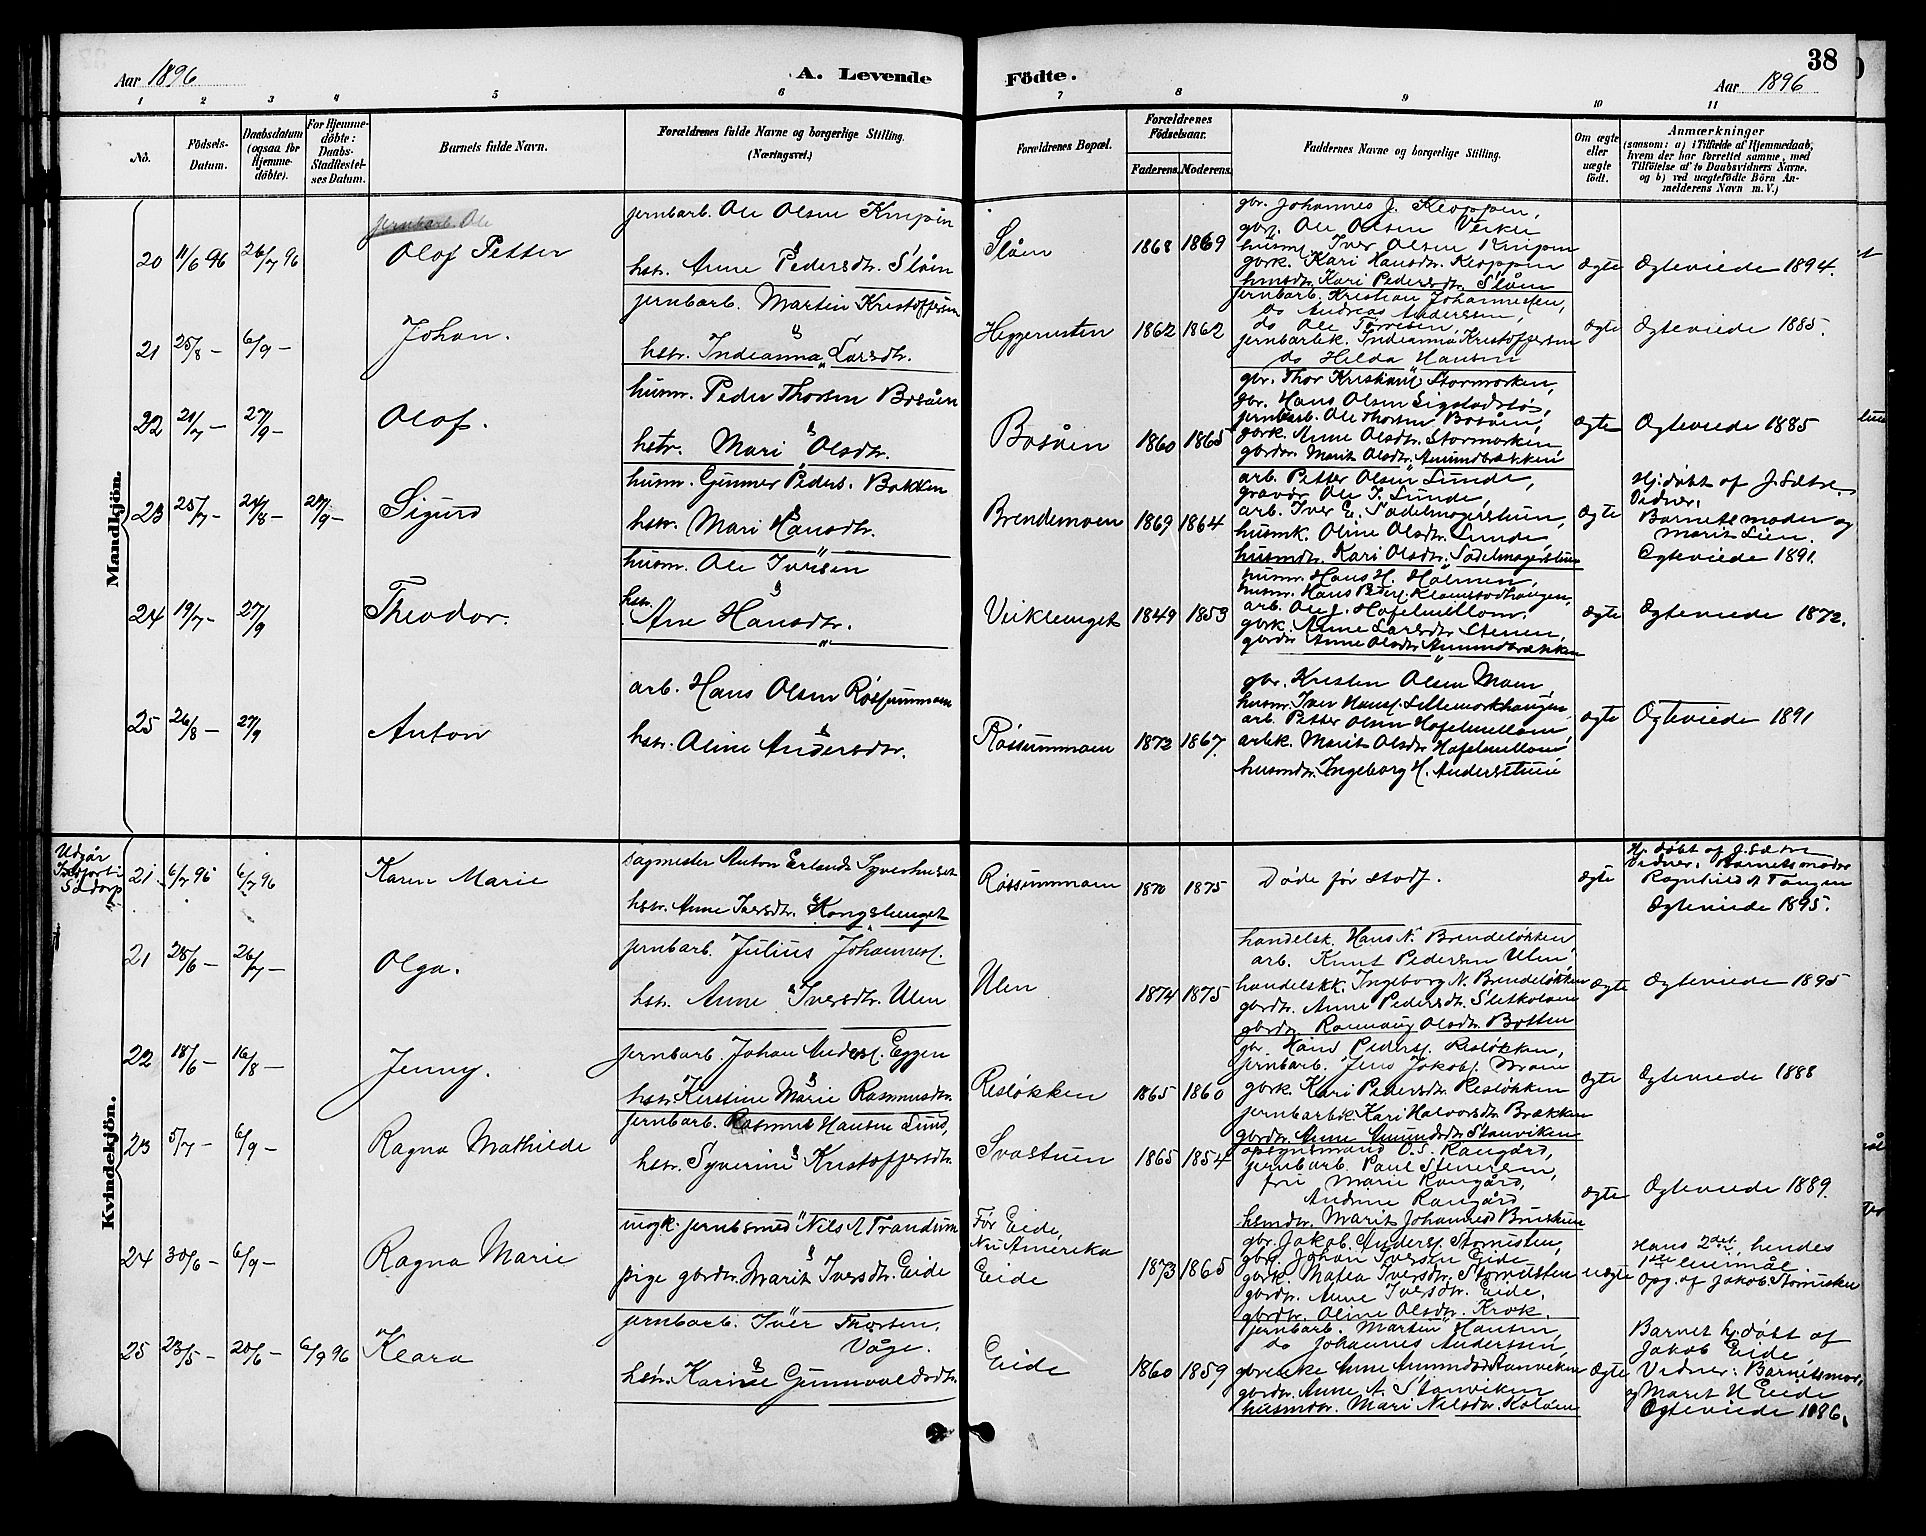 Aar 1896
A. Levende
Födte.
Aar 1896
38
1 2 3 4 5 6 7 8 9 10 11
No.
Födsels-Datum.
Daabsdatum (ogsaa for Hjemme-döbte).
For Hjemme-döbte: Daabs-Stadfæstel-ses Datum.
Barnets fulde Navn.
Forældrenes fulde Navne og borgerlige Stilling. (Næringsvei.)
Forældrenes Bopæl.
Forældrenes Födselsaar.
Faderens. Moderens.
Faddernes Navne og borgerlige Stilling.
Om ægte eller uægte födt.
Anmærkninger (saasom: a) i Tilfælde af Hjemmedaab, hvem der har forrettet samme, med Tilföielse af to Daabsvidners Navne, og b) ved uægtefödte Börn An-melderens Navn m. V.)
Mandkjön.
jernbarb. Ole
20 11/6 96 26/7 96 Olof Petter
jernbarb. Ole Olsen Knipen
&
hstr. Anne Pedersdtr. Slåen
Slåen 1868 1869
gbr. Johannes J. Kloppen,
gbr. Ole Olsen Verken
husm. Iver Olsen Knipen
gbrk. Kari Hansdtr. Kloppen
hmsdtr. Kari Pedersdtr. Slåen
ægte Ægteviede 1894.
21 25/8 – 6/9 – Johan.
jernbarb. Martin Kristoffersen
&
hstr. Indianna Larsdtr.
Heggerusten 1862 1862
jernbarb. Kristian Johannessen,
do Andreas Anderssen,
do Ole Torresen,
jernbarbk. Indianna Kristoffersen
do Hilda Hansen
ægte Ægteviede 1885.
22 21/7 – 27/9 – Olof.
husm. Peder Thorsen Bosåen
&
hstr. Mari Olsdtr.
Bosåen 1860 1865
gbr. Thor Kristians Stormorken,
gbr. Hans Olsen Sigstadstø,
jernbarb. Ole Thorsen Bosåen,
gbrk. Anne Olsdtr. Stormorken
gbrdtr. Marit Olsdtr. Amundbrækken
ægte Ægteviede 1885
23 25/7 – 24/8 – 27/9 – Sigurd
husm. Gunner Peders. Bakken
&
hstr. Mari Hansdtr.
Brendemoen 1869 1864
arb. Petter Olsen Lunde,
gravør Ole J. Lunde,
arb. Iver E. Sadelmagerstuen,
husmk. Oline Olsdtr. Lunde
husmdtr. Kari Olsdtr. Sadelmagerstuen
ægte
Hj. døbt af J. Sætre.
Vidner:
Barnets moder og
Marit Lien.
Ægteviede 1891.
24 19/7 – 27/9 Theodor.
husm. Ole Iversen
&
hstr. Ane Hansdtr.
Veiklenget 1849 1853
husm. Hans H. Holmen,
husm. Hans Peders. Klomstadhaugen,
arb. Ole J. Hofelmellom,
gbrk. Anne Larsdtr. Stenen,
gbrdtr. Anne Olsdtr. Amundbrækken
ægte Ægteviede 1872.
25 26/8 – 27/9 Anton
arb. Hans Olsen Røssummoen
&
hstr. Oline Andersdtr.
Røssummoen 1872 1867.
gbr. Kristen Olsen Moen
husm. Iver Hans. Lillemorkhaugen
arb. Petter Olsen Hofelmellom,
arbk. Marit Olsdtr. Hofelmellom
husmdtr. Ingeborg H. Andersstuen
ægte Ægteviede 1891
Kvindekjön.
Udgår
21 6/7 96 6/7 96 Karen Marie
sagmester Anton Erlands. Syverhuset
&
hstr. Anne Iversdtr. Kongslienget
Røssummoen 1870 1875
Døde før stadf.
ægte
Hj. døbt af J. Sætre
Vidner: Barnets moder
Ragnhild A Tangen
Ægteviede 1895.
21 28/6 – 26/7 – Olga.
jernbarb. Julius Johannes.
&
hstr. Anne Iversdtr. Ulen
Ulen 1874 1875
handelsk. Hans N. Brendeløkken,
arb. Knut Pedersen Ulen,
handelskk. Ingeborg N. Brendeløkken
gbrdtr. Anne Pedersdtr. Sletkolen
gbrdtr. Rannaug Olsdtr. Botten
ægte Ægteviede 1895
22 18/6 – 16/8 – Jenny.
jernbarb. Johan Anders. Eggen
&
hstr. Kerstine Marie Rasmusdtr.
Resløkken 1865 1860
gbr. Hans Peders. Resløkken,
jernbarb. Jens Jakobs. Moen
gbrk. Kari Pedersdtr. Resløkken
jernbarbk. Kari Halvorsdtr. Brækken
gbrdtr. Anne Amundsdtr. Stanviken
ægte Ægteviede 1888
23 5/7 – 6/9 – Ragna Mathilde
jernbarb. Rasmus Hansen Lund,
&
hstr. Syverine Kristoffersdtr.
Svastuen 1865 1854
opsynsmand O. S. Rangård,
jernbarb. Paul Stenersen,
fru Marie Rangård,
Andrine Rangård
hsmdtr. Marit Johannesd. Bustuen
ægte Ægteviede 1889.
24 30/6 – 6/9 – Ragna Marie
ungk. jernbsmed Nils A Trandum
&
pige gbrdtr. Marit Iversdtr. Eide
Før Eide,
Nu Amerika
Eide
1873 1865
gbr. Jakob Anders. Stomusten,
gbr. Johan Iversen Eide
gbrk. Mathea Iversdtr. Stomusten
gbrdtr. Anne Iversdtr. Eide,
gbrdtr. Oline Olsdtr. Krok.
uægte
Hans 2det, hendes
1ste leiermål.
Opg. af Jakob Stomusten
25 23/5 – 20/6 – 6/9 96 Klara
jernbarb. Iver Thorsen
Våge.
&
hstr. Karine Gunnvaldsdtr.
Eide 1860 1859
jernbarb. Martin Hansen,
do Johannes Anderssen,
gbrenke Anne Amundsd. Stanviken
gbrdtr. Anne A. Stanviken
husmdtr. Mari Nilsdtr. Koloen
ægte
Barnet hj. døbt af
Jakob Eide
Vidner: Barnets mor,
og Marit N Eide
Ægteviede 1886.